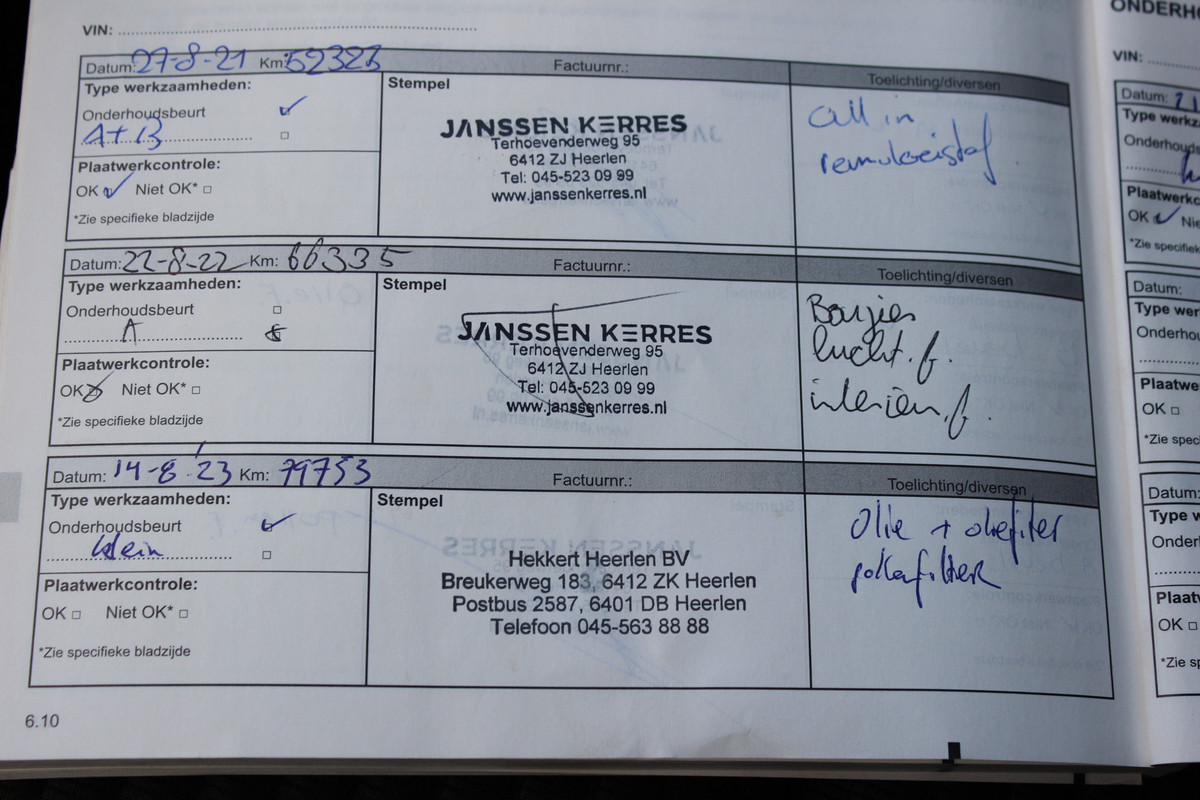 VIN:
Datum: 27-8-21 Km: 52323 Factuurnr.: Toelichting/diversen
Type werkzaamheden:
Onderhoudsbeurt
A+B
Plaatwerkcontrole:
OK Niet OK*
*Zie specifieke bladzijde
Stempel
JANSSEN KERRES
Terhoevenderweg 95
6412 ZJ Heerlen
Tel: 045-523 09 99
www.janssenkerres.nl
all in
remvloeistof
Datum: 22-8-22 Km: 66335 Factuurnr.: Toelichting/diversen
Type werkzaamheden:
Onderhoudsbeurt
A
Plaatwerkcontrole:
OK Niet OK*
*Zie specifieke bladzijde
Stempel
JANSSEN KERRES
Terhoevenderweg 95
6412 ZJ Heerlen
Tel: 045-523 09 99
www.janssenkerres.nl
Bougies
lucht.f.
interieur.f.
Datum: 14-8-'23 Km: 79753 Factuurnr.: Toelichting/diversen
Type werkzaamheden:
Onderhoudsbeurt
klein
Plaatwerkcontrole:
OK Niet OK*
*Zie specifieke bladzijde
Stempel
Hekkert Heerlen BV
Breukerweg 183, 6412 ZK Heerlen
Postbus 2587, 6401 DB Heerlen
Telefoon 045-563 88 88
Olie + oliefilter
pollenfilter
6.10
VIN:
Datum:
Type
OK
*Zie
Datum:
Type
OK
*Zie
Datum:
Type
OK
*Zie